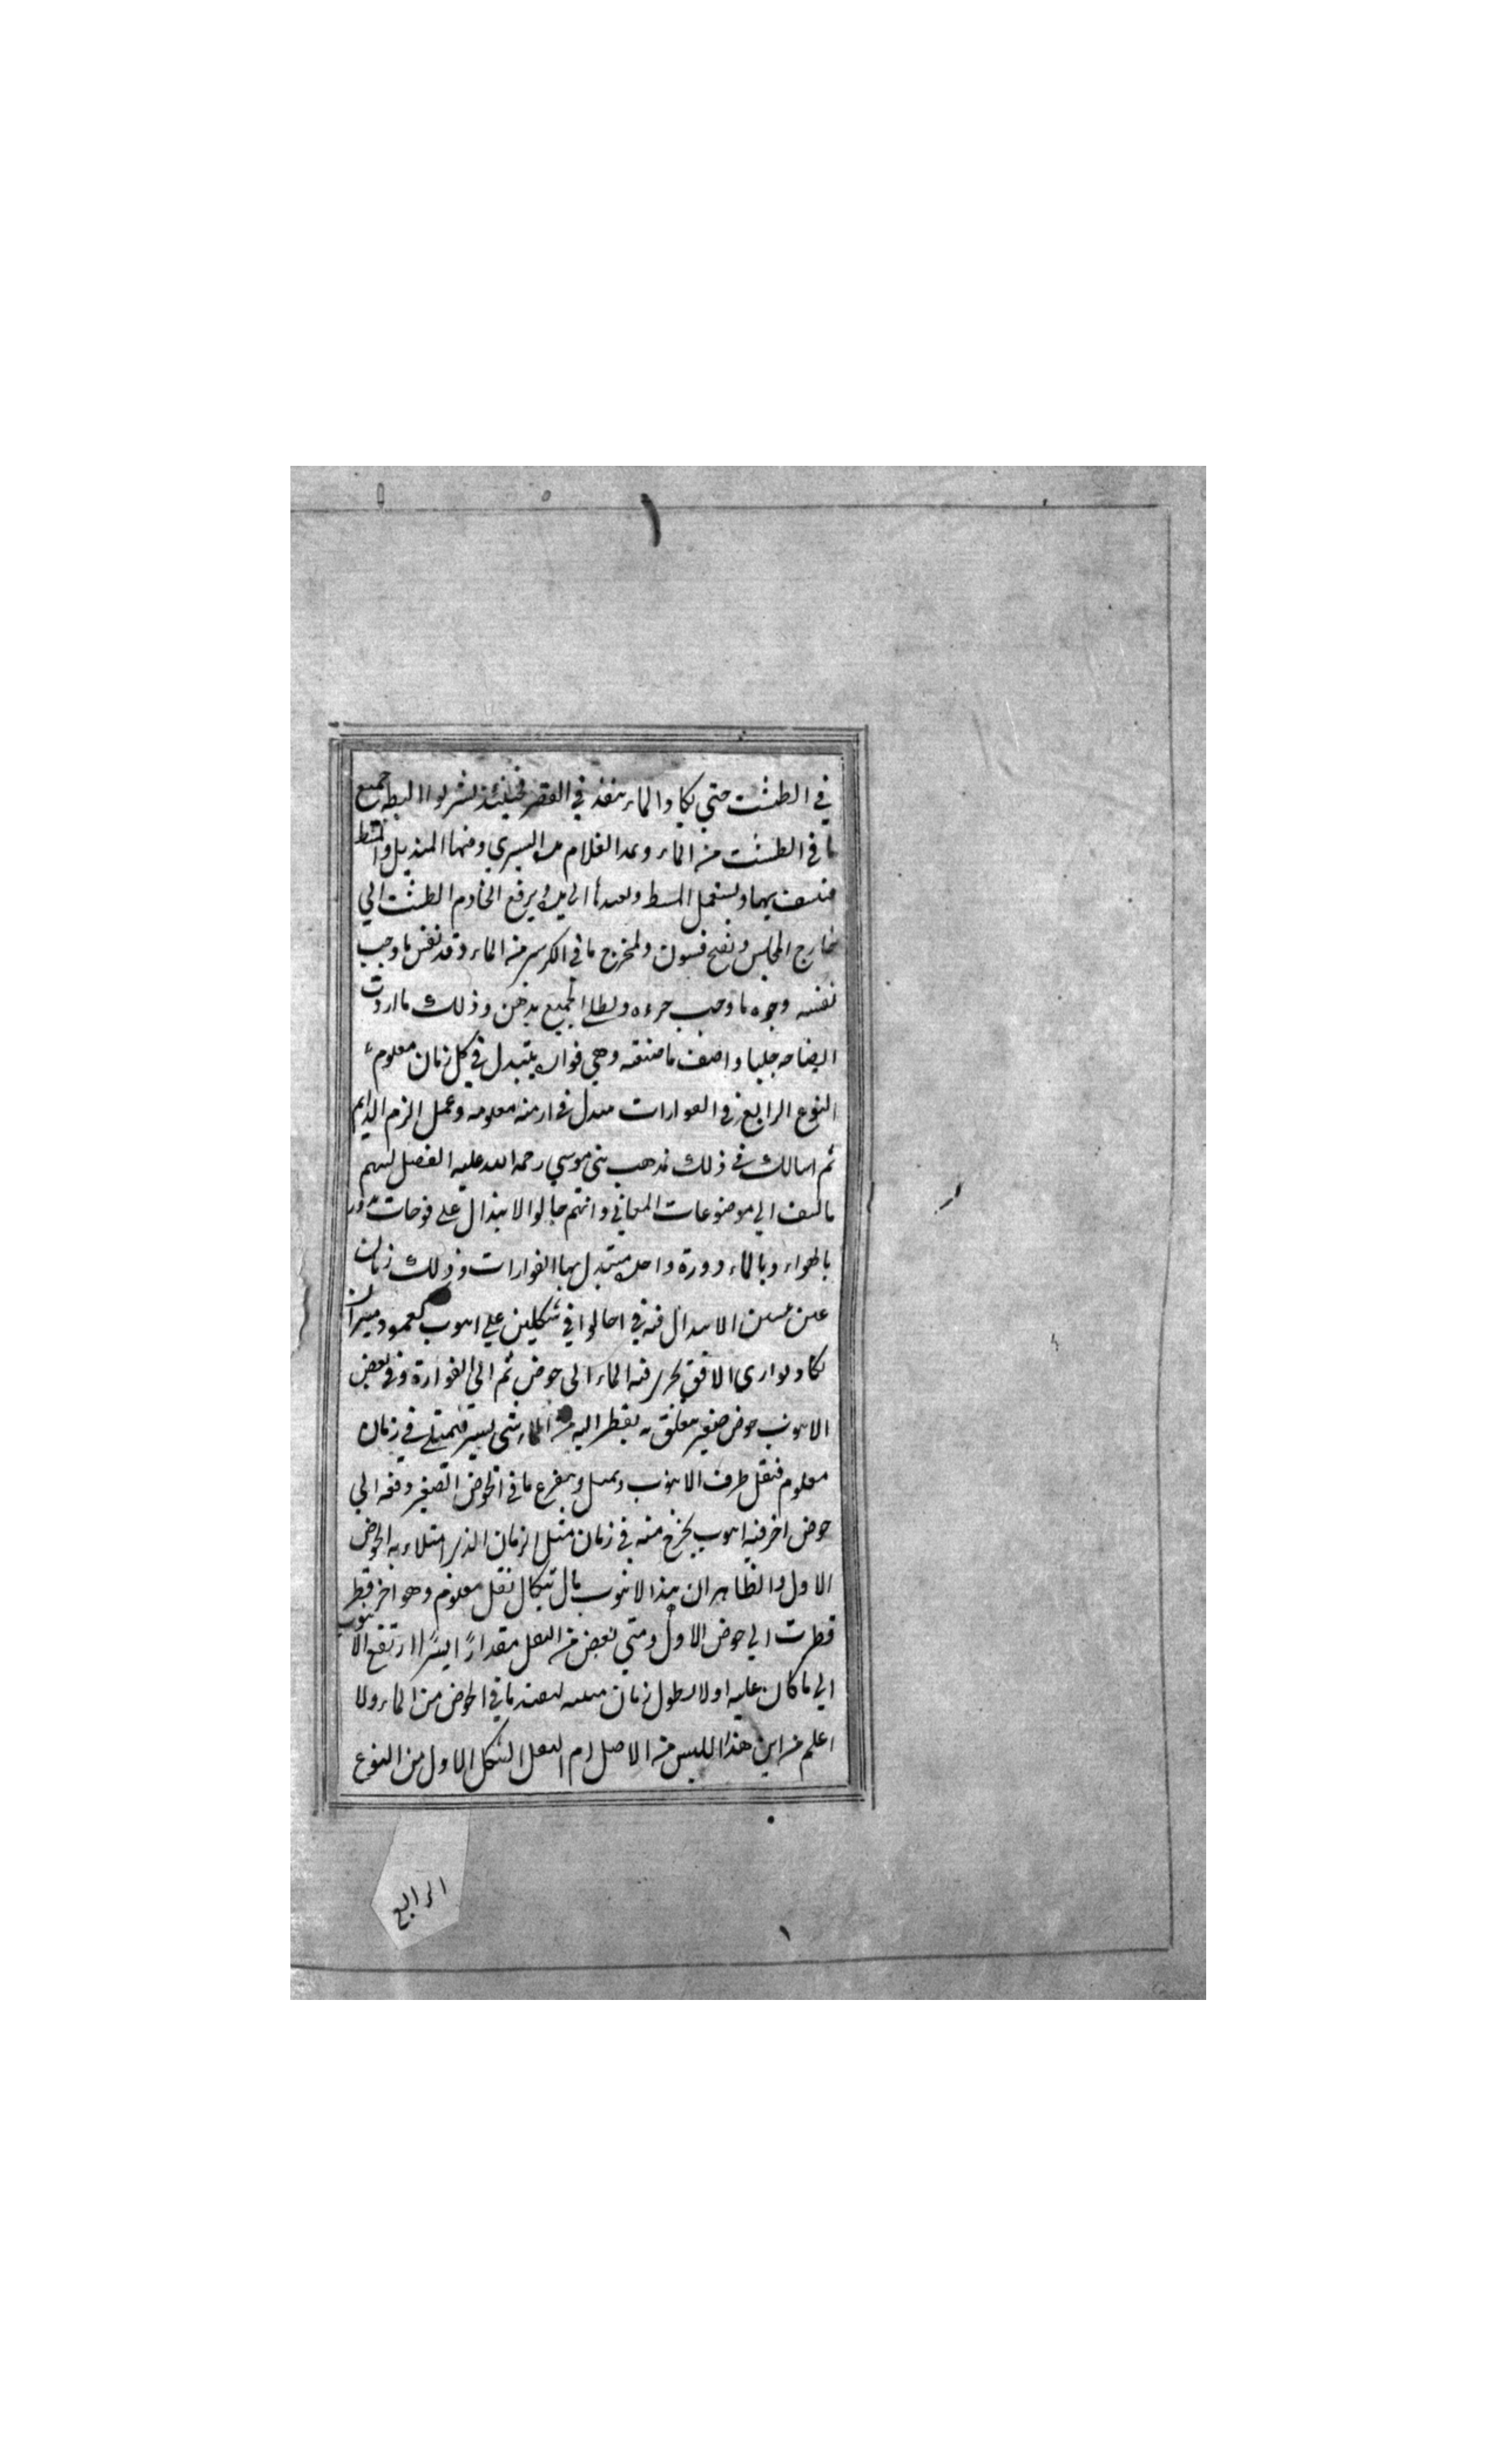 في الطشت حتي يكاد الماء ينفذ في القصر فحينئذ يشربوا البطه جميع
ما في الطشت من الماء ويمد الغلام يده اليسري ومنها المنديل والمشط
فينشف بهما ويستعمل المشط ويعيدها الي يده ويرفع الخادم الطشت الي
خارج المجلس ويفتح ويخرج ما في الكرسي من الماء وقد نقش ما وجب
نقشه وجرد ما وجب جرده ويطلى الجميع بدهن وذلك ما اردت
ايضاحه جليا واصف ما صنفه وهي فواره يتبدل في كل زمان معلوم
النوع الرابع في الفوارات تتبدل في ازمنه معلومه وعمل الزمر الدايم
ثم اسالك في ذلك مذهب بني موسي رحمه الله عليه الفضل لهم
بالسبق الي موضوعات المعاني وانهم حالوا الابدال علي فوحات تدور
بالهواء وبالماء دورة واحده يتبدل بها الفوارات وذلك زمان
عن الابدال فيه في احالوا في شكلين علي انبوب كعمود ميزان
يكاد يوازي الافق يجري فيه الماء الى حوض ثم الى الفوارة وفي بعض
الانبوب حوض صغير معلق به يقطر اليه من الماء شي يسير فيمتلي في زمان
معلوم فيثقل طرف الانبوب ويميل ويتفرغ ما في الحوض الصغير وفقه الي
حوض اخر فيه انبوب يخرج منه في زمان مثل الزمان الذي امتلاء به الحوض
الاول والظاهر ان هذا الانبوب مال بثقل معلوم وهو اخر قطر
قطرت الي حوض الاول ومتي نقص من الثقل مقدارًا يسيرًا ارتفع الانبوب
الي ما كان عليه اولا لا يطول زمان ما في الحوض من الماء ولا
اعلم من اين هذا اللبس من الاصل ام النقل الشكل الاول من النوع
الرابع